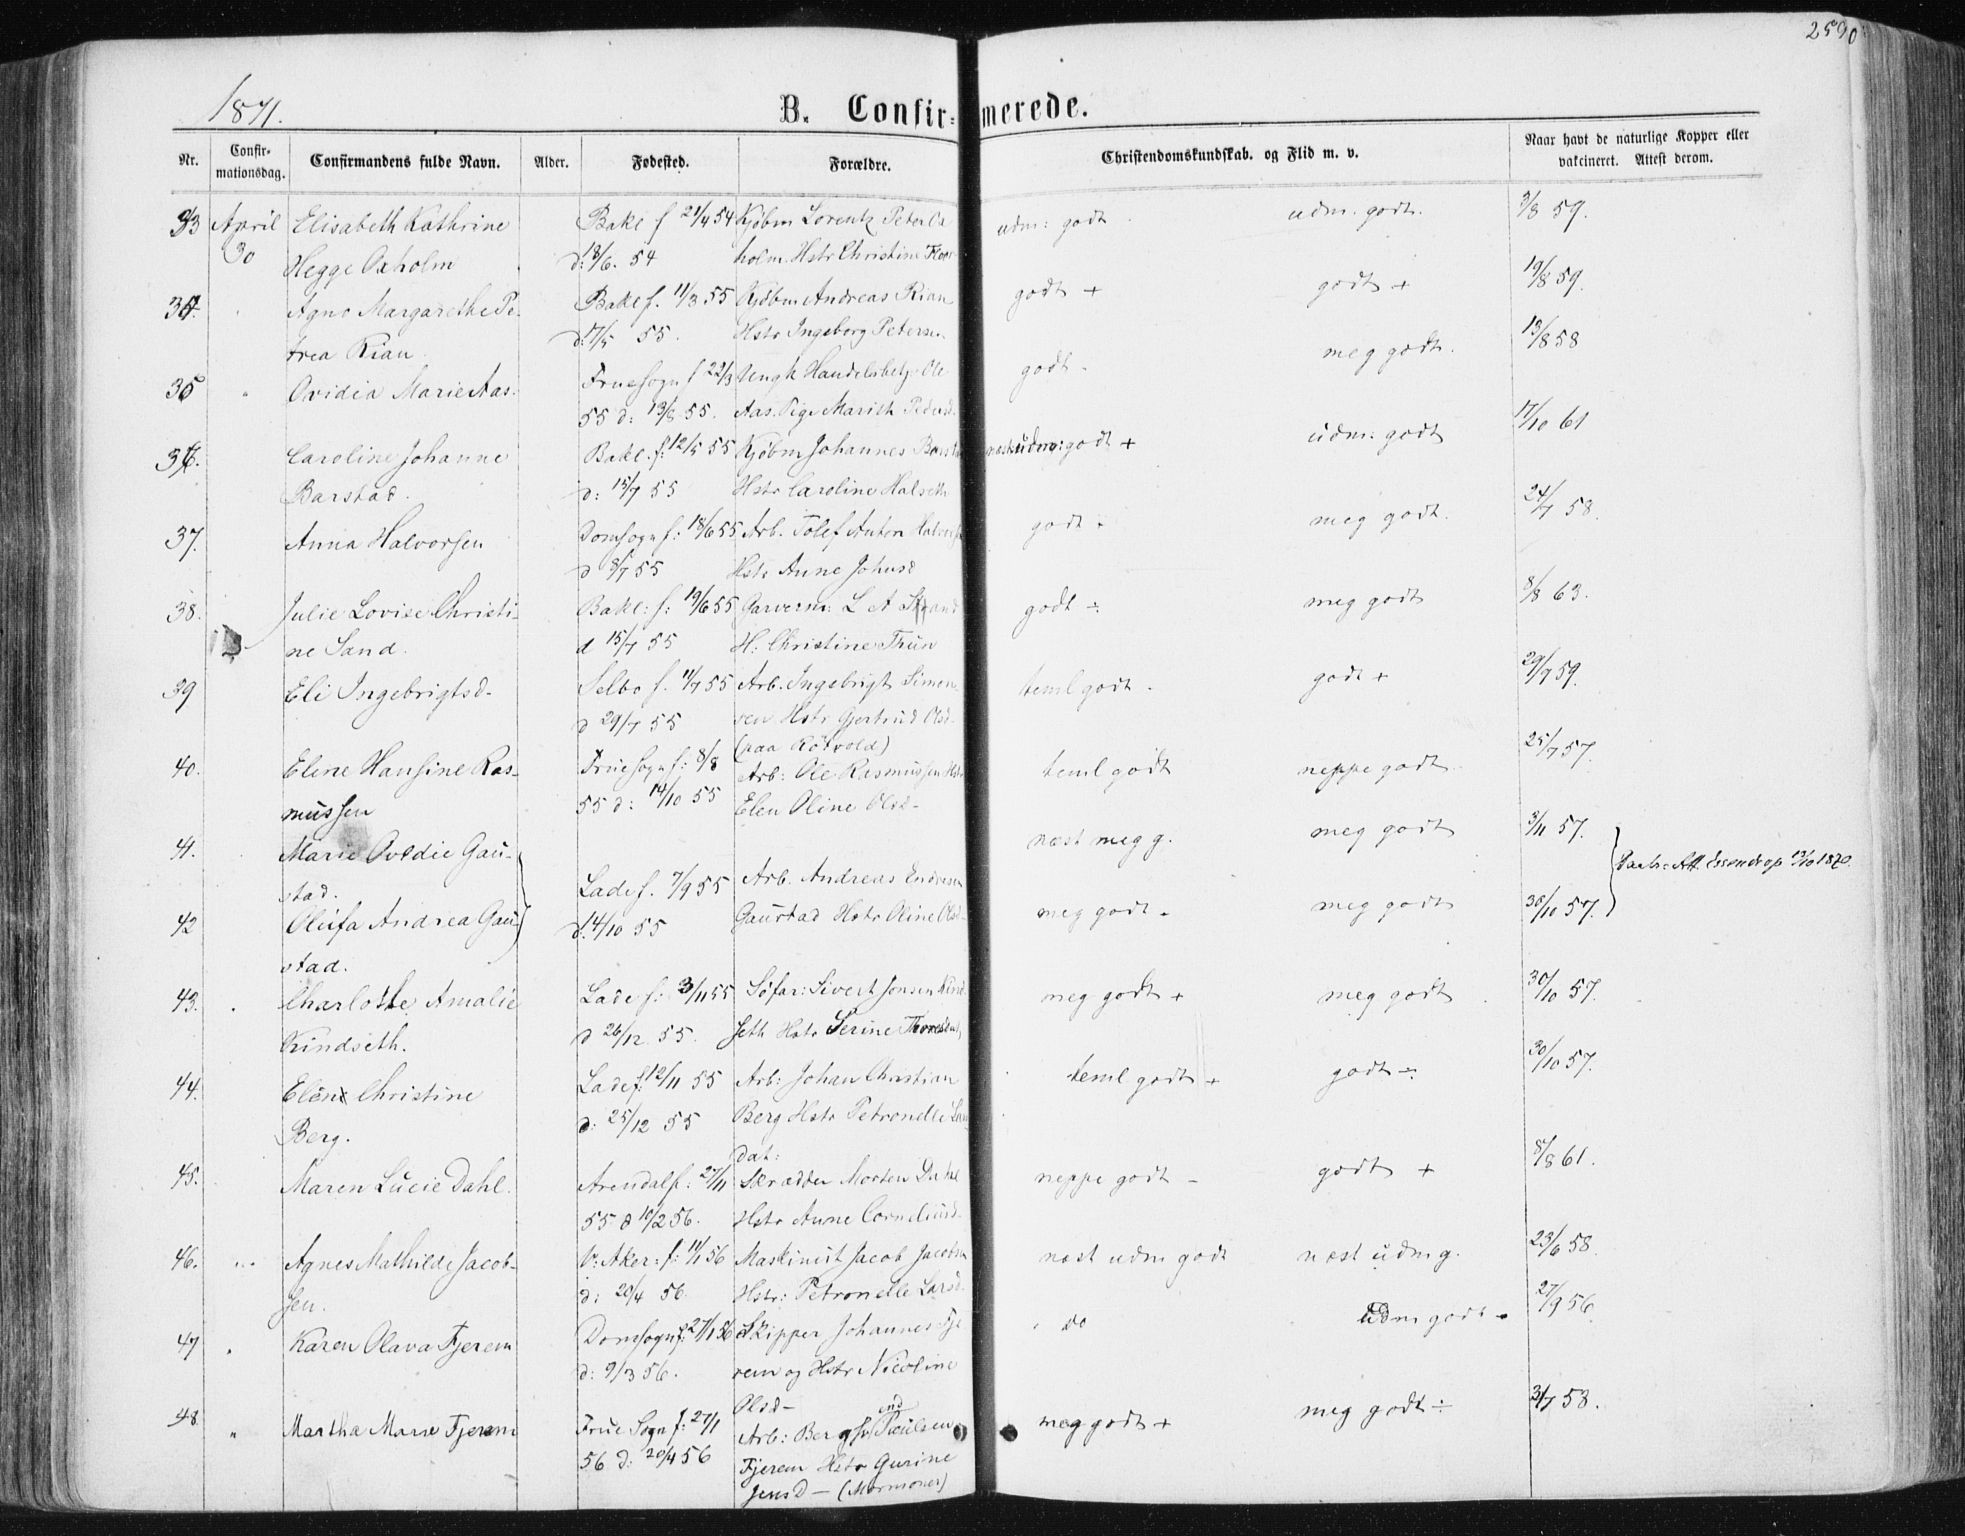 2590
1871.
B. Confirmerede.
Nr. Confirmationsdag. Confirmandens fulde Navn. Alder. Fødested. Forældre. Christendomskundskab. og Flid m. v. Naar havt de naturlige Kopper eller vakcineret. Attest derom.
33 April Elisabeth Kathrine Bakl f 21/4 54 Kjøbm Lorentz Peter Ox udm: godt udm. godt. 3/8 59.
30 Hegge Oxholm d: 18/6. 54 holm. Hstr Christine
34. Agno Margarethe Pe- Bakl f. 11/3 55 Kjøbm Andreas Rian godt + godt + 19/8 59.
trea Rian. d: 17/5 55. Hstr Ingeborg Petersen
35 " Ovidia Marie Aas. Fruesogn f 22/3 Ungk Handelsbetj. Ole godt - meg godt. 13/8 58
55 d: 13/8 55. Aas. Pige Marith Pedersd.
36. Caroline Johanne Bakl. f: 12/5 55 Kjøbm Johannes Barstad næst udm: godt + udm: godt 17/10 61
Barstad. d: 15/7 55 Hstr Caroline Halseth
37. Anna Halvorsen Domsogn f: 18/6 55 Arb. Tolef Anton godt - meg godt. 24/7 58.
d 8/7 55 Hstr Anne Johnsd
38. Julie Lovise Christi- Bakl: f: 19/6 55 Garverm: L A Sand godt ÷ meg godt 8/8 63.
ne Sand. d 15/7 55 H: Christine Thun
39 Eli Ingebrigtsd- Selbo f. 11/7 55 Arb. Ingebrigt Simon- teml godt - godt + 29/7 59.
d 29/7 55 sen Hstr Gjertrud Olsd-
(paa Rotvold)
40. Eline Hansine Ras- Fruesogn f: 8/8 Arb: Ole Rasmussen Hstr teml godt neppe godt 25/7 57.
mussen 55 d: 14/10 55 Elen Oline Olsd-
41. Marie Ovedie Gau- næst meg g. meg godt 3/11 57.
stad. Lade f. 7/9 55 Arb. Andreas Endresen Att. Essendrop 13/10 1870.
42 Olufa Andrea Gau- d: 14/10 55 Gaustad Hstr Oline Olsd- meg godt - meg godt 30/10 57.
stad.
43. Charlotte Amalie Lade f: 3/11 55 Søfar: Sivert Jonsen Kind- meg godt + meg godt 30/10 57.
Kindseth. d 26/12 55. seth Hstr Serine
44. Elen Christine Lade f: 12/11 55 Arb: Johan Christian teml godt + godt ÷ 30/10 57.
Berg. d: 25/12 55 Berg Hstr Petronelle
dat:
45. Maren Lucie Dahl. Arendal f: 27/11 Skrædder Morten Dahl neppe godt - godt + 8/8 61.
55 d 10/2 56. Hstr Anne Corneliusd.
46. Agnes Mathilde Jacob- V: Aker: f: 11/1 56 Maskinist Jacob Jacobsen næst udm godt næst udm g. 23/6 58.
sen. d: 20/4 56. Hstr: Petronelle Larsd.
47 " Karen Olava Fjerem Domsogn f: 27/1 56 Skipper Johannes Fje- do udm godt - 27/9 56.
d: 9/3 56. rem og Hstr Nicoline
Olsd-
48. " Martha Marie Fjerem Frue Sogn f: 27/1 Arb: Paulsen meg godt + meg godt ÷ 3/7 58.
56 d: 20/4 56 Fjerem Hstr Gurine
Jensd - (Mormoner)